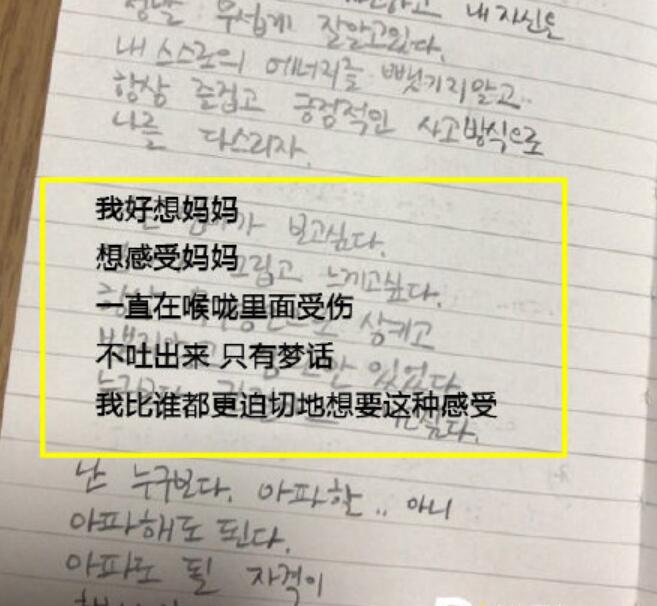 정말 무섭게 잘알고있다.
내 자신은
내 스스로의 에너지를 뺏기지않고
항상 즐겁고 긍정적인 사고방식으로
나를 다스리자.
我好想妈妈
보고싶다.
想感受妈妈
그립고 느끼고싶다.
一直在喉咙里面受伤
삼키고
不吐出来 只有梦话
있었다
我比谁都更迫切地想要这种感受
싶다.
난 누구보다. 아파할.. 아니
아파해도 된다.
아파도 될 자격이